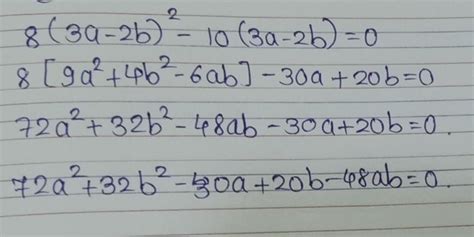 8(3a-2b)² - 10(3a-2b)=0
8[9a²+4b²-6ab]-30a+20b=0
72a²+32b²-48ab-30a+20b=0.
72a²+32b²-30a+20b-48ab=0.